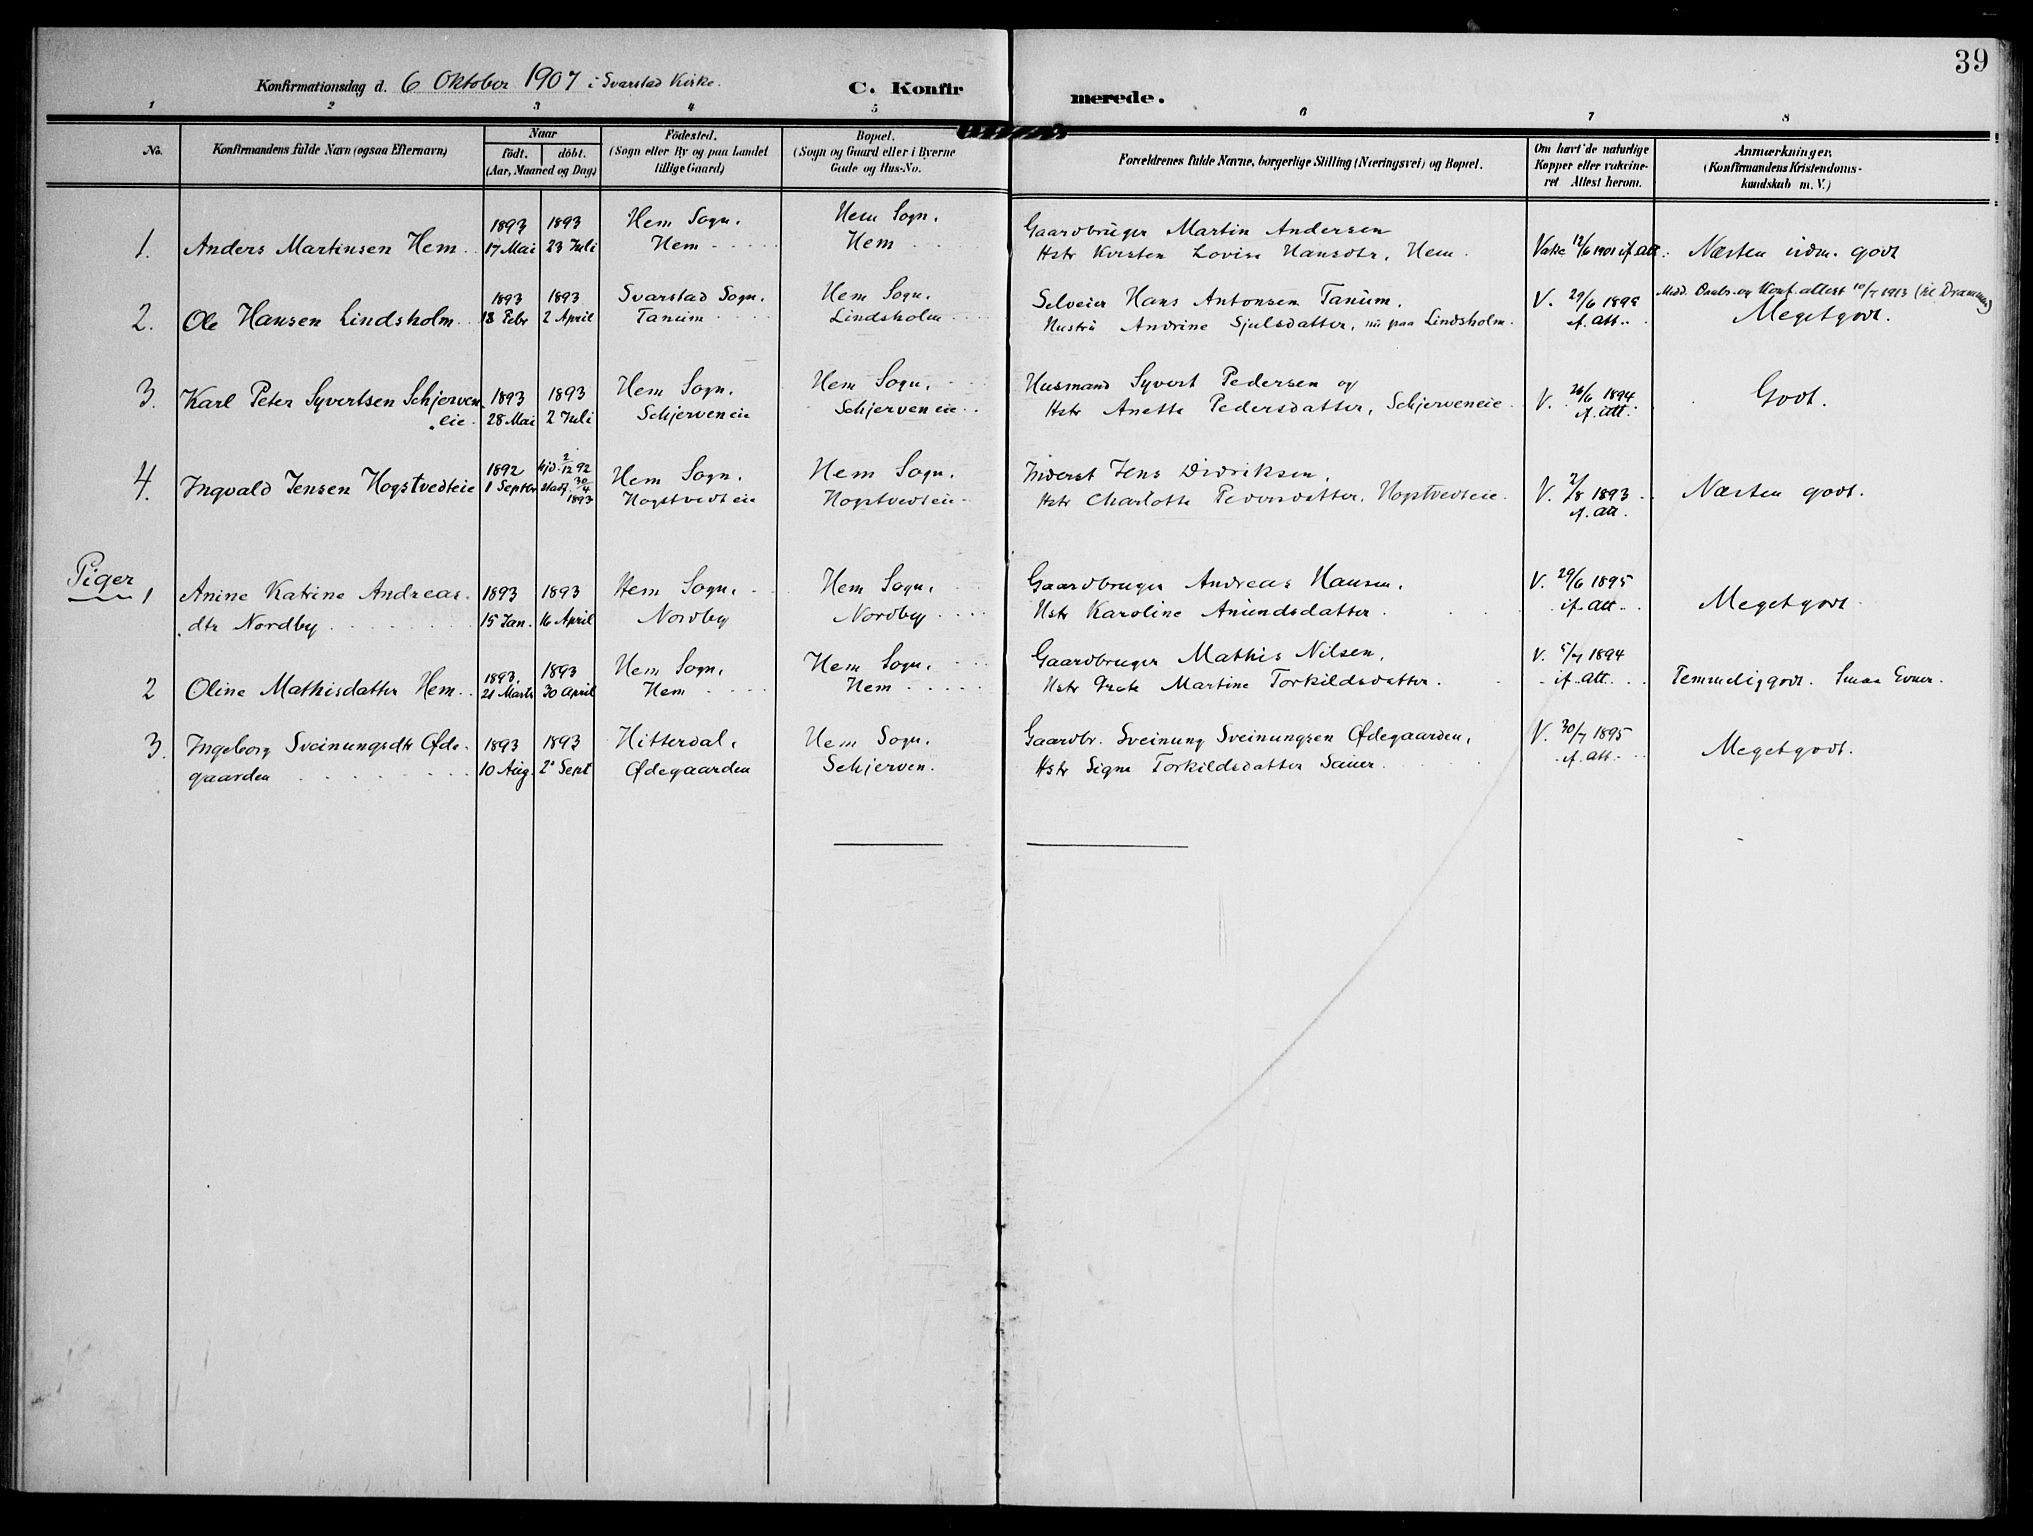 39
Konfirmationsdag d. 6 Oktober 1907 i Svarstad Kirke.
C. Konfirmerede.
1 2 3 4 5 6 7 8
No.
Konfirmandens fulde Navn (ogsaa Efternavn)
Naar
födt. döbt.
(Aar, Maaned og Dag)
Födested.
(Sogn eller By og paa Landet
tillige Gaard)
Bopæl.
(Sogn og Gaard eller i Byerne
Gade og Hus-No.
Forældrenes fulde Navne, borgerlige Stilling (Næringsvei) og Bopæl.
Om havt de naturlige
Kopper eller vakcine-
ret Attest herom.
Anmærkninger.
(Konfirmandens Kristendoms-
kundskab m. V.)
1893 1893 Hem Sogn. Hem Sogn. Gaardbruger Martin Andersen
1. Anders Martinsen Hem 17 Mai 23 Juli Hem Hem Hstr Kirsten Lovise Hansdtr, Hem. Vakc 12/6 1901 if. att. Næsten udm. godt
1893 1893 Svarstad Sogn. Hem Sogn. Selveier Hans Antonsen Tanum. V. 29/6 1898 Medd. Daabs- og Konf.attest 10/7 1913 (til Drammen)
2. Ole Hansen Lindsholm 18 Febr 2 April Tanum Lindsholm Hustru Andrine Sjulsdatter, nu paa Lindsholm. if. att. Megetgodt.
3. Karl Peter Syvertsen Schjerven 1893 1893 Hem Sogn. Hem Sogn. Husmand Syvert Pedersen og V. 26/6 1894 Godt.
eie. 28 Mai 2 Juli Schjerveneie Schjerveneie Hstr Anette Pedersdatter, Schjerveneie. if. att.
1892 hjd. 2/12 92 Hem Sogn. Hem Sogn. Inderst Jens Didriksen.
4. Ingvald Jensen Hogstvedteie 1 Septbr stadf. 30/4 1893 Hogstvedteie Hogstvedteie Hstr Charlotte Pedersdatter, Hogstvedteie. V. 2/8 1893 Næsten godt.
if. att.
Piger
1 Anine Katrine Andreas- 1893 1893 Hem Sogn. Hem Sogn. Gaardbruger Andreas Hansen. V. 29/6 1895
dtr Nordby 15 Jan. 16 April Nordby Nordby Hstr Karoline Amundsdatter. if. att. Megetgodt.
1893. 1893 Hem Sogn. Hem Sogn. Gaardbruger Mathis Nilsen. V. 5/7 1894
2 Oline Mathisdatter Hem 21 Marts 30 April Hem Hem Hstr Grete Martine Torkildsdatter. if. att. Temmeliggodt. Smaa Evner.
3. Ingeborg Sveinungsdtr Øde- 1893 1893 Hitterdal. Hem Sogn. Gaardbr. Sveinung Sveinungsen Ødegaarden. V. 30/7 1895 Megetgodt.
gaarden 10 Aug. Sept Ødegaarden Schjerven. Hstr Signe Torkildsdatter Sauer if. att.